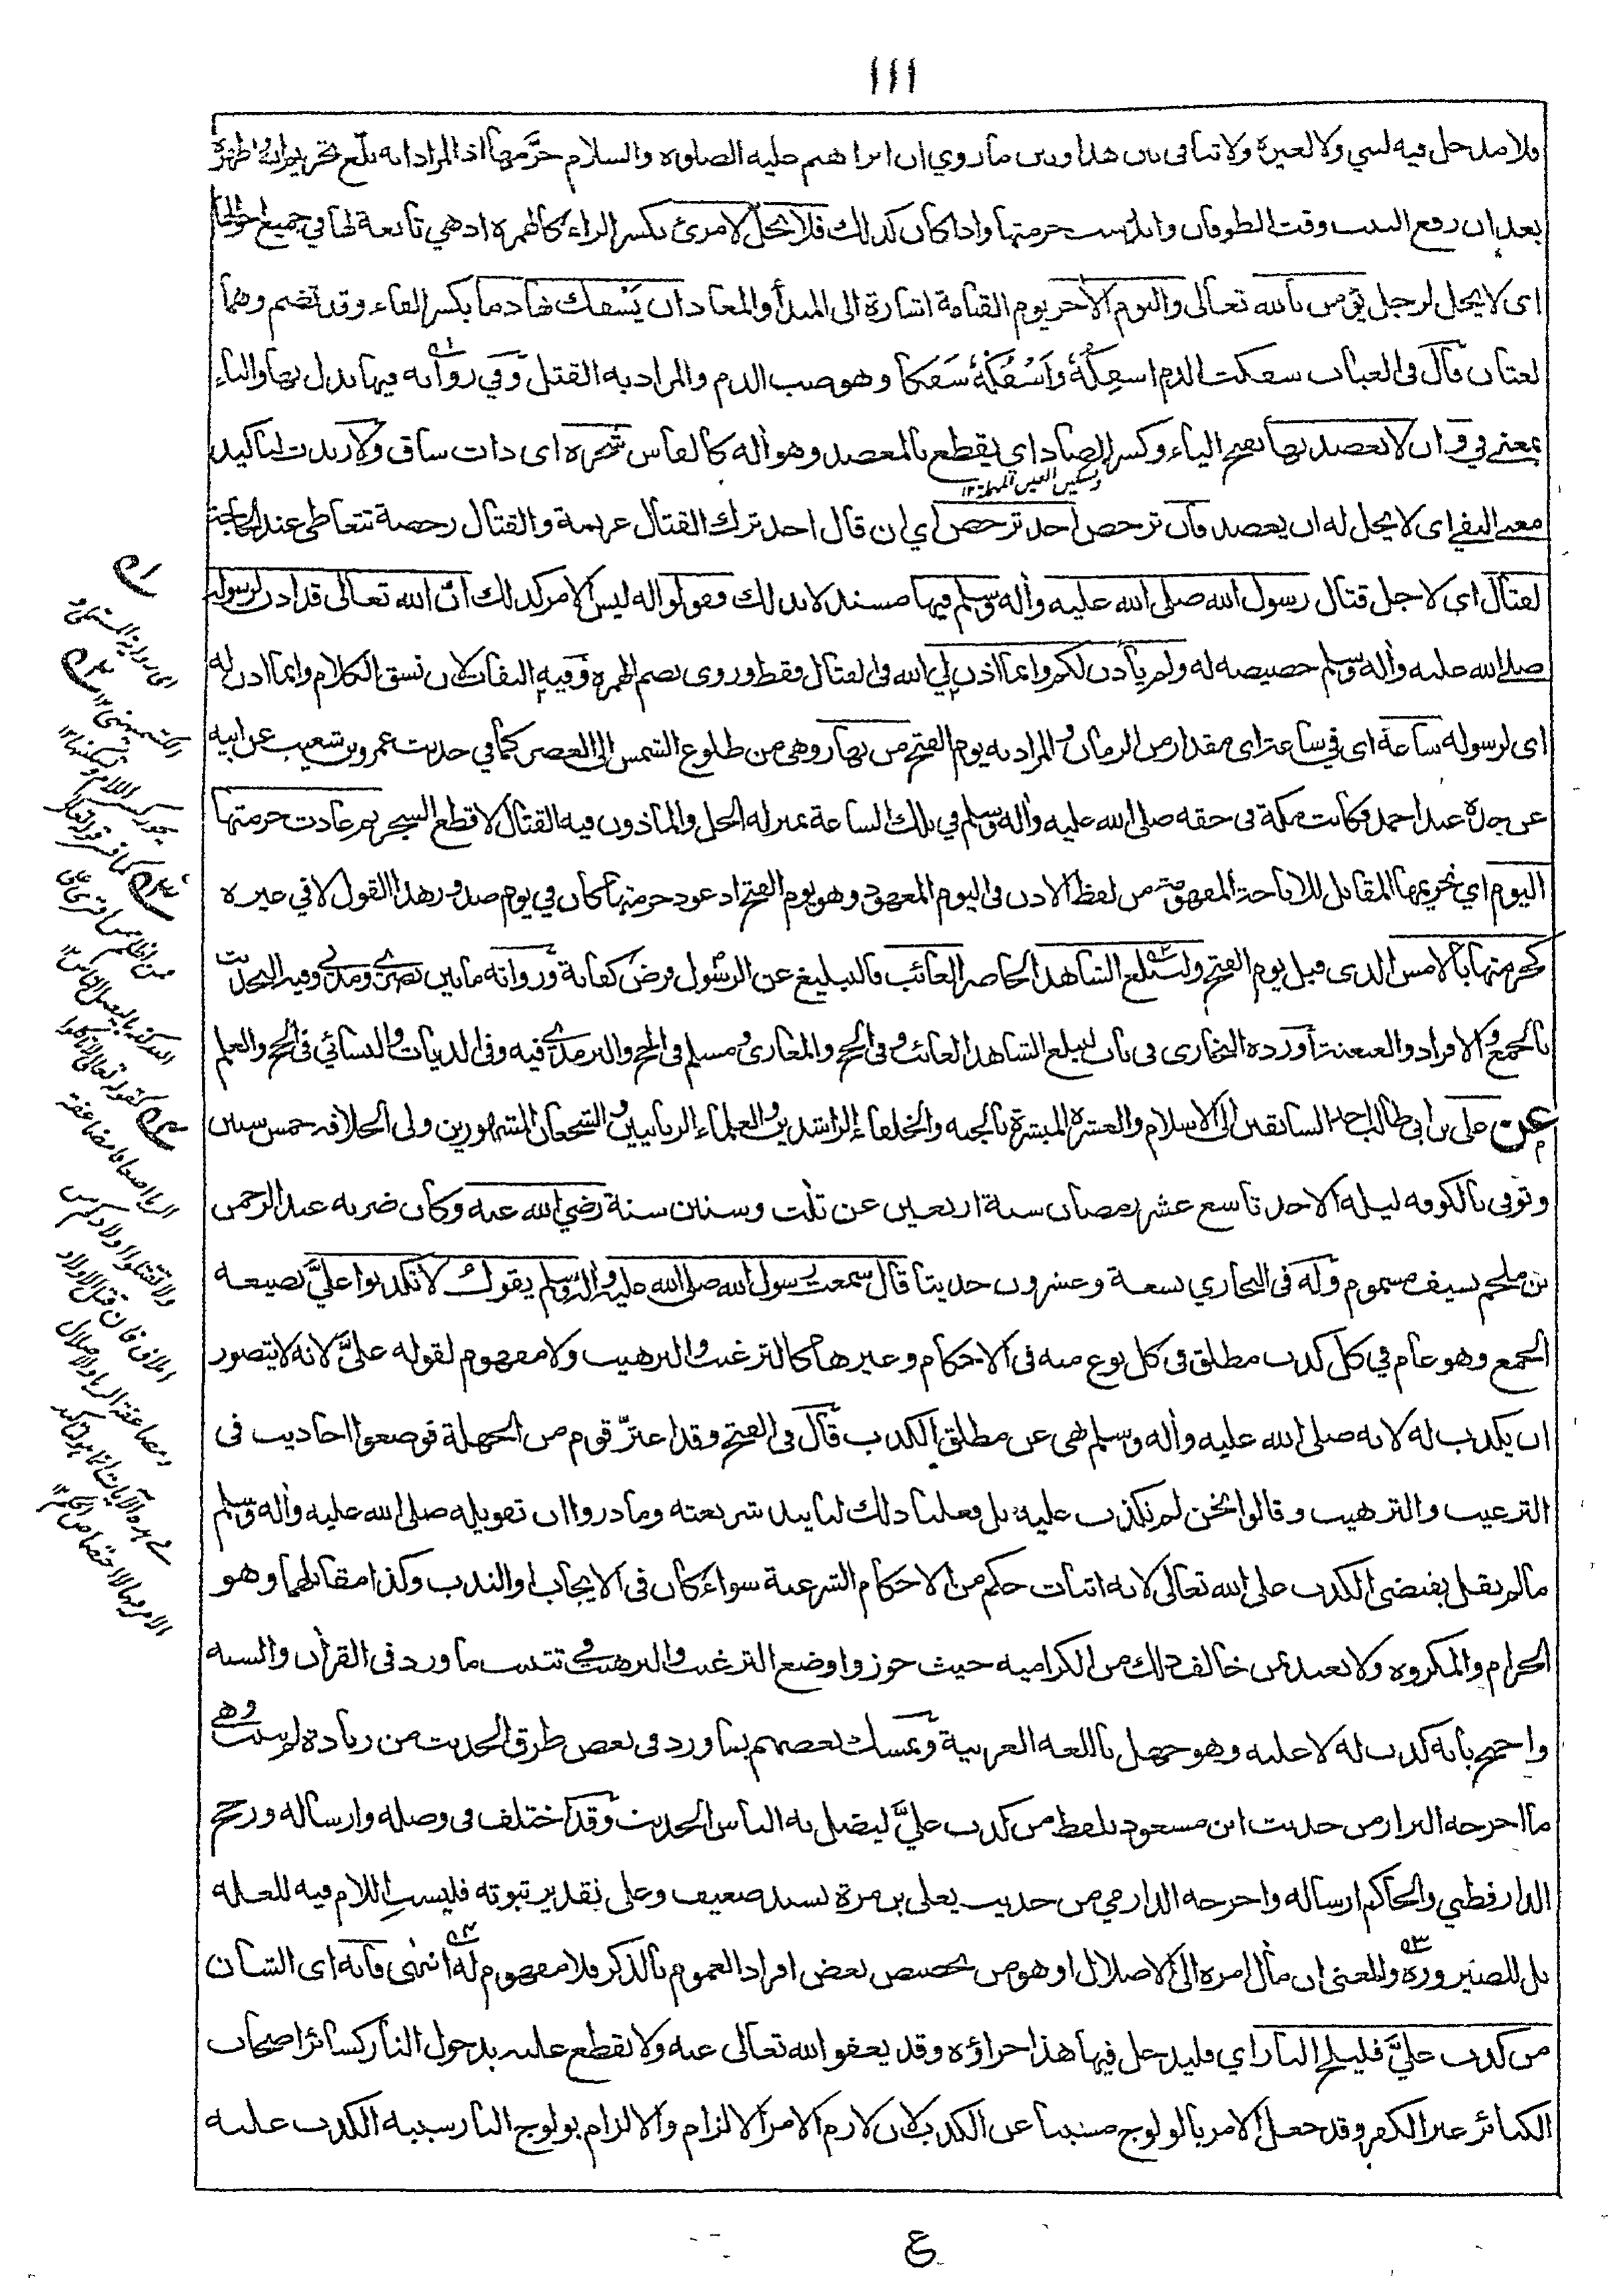 ١١١
فلا مدخل فيه لشي ولا لغيره ولا تنافى بين هذا وبين ما روي ان ابراهيم عليه الصلوة والسلام حرَّمها اذ المراد انه بلّغ تحريم الله واظهره
بعد ان رفع البيت وقت الطوفان واندرست حرمتها واذا كان كذلك فلا يحل لامرئ بكسر الراء كالهمزة اذ هي تابعة لها في جميع احوالها
اى لا يحل لرجل يؤمن بالله تعالى واليوم الآخر يوم القيامة اشارة الى المبدأ والمعاد ان يَسْفك بها دما بكسر الفاء وقد تضم وهما
لغتان قال فى العباب سفكت الدم اسفِكُهُ وَاَسْفُكُهُ سَفكا وهو صب الدم والمراد به القتل وفي رواية فيها بدل بها والباء
بمعنى في و ان لا يعضد بها بفتح الياء وكسر الضاد اي يقطع بالمعضد وهو آلة كالفاس شجرة اى ذات ساق ولا زيدت لتاكيد
وتسكين العين المهملة ١٢
معنى النفي اى لا يحل له ان يعضد فان ترخص احد ترخص اي ان قال احد ترك القتال عزيمة والقتال رخصة تتعاطى عند الحاجة
لقتال اى لاجل قتال رسول الله صلى الله عليه وآله وسلم فيها مستدلا بذلك فقولوا له ليس الامر كذلك انّ الله تعالى قد اذن لرسوله
صلى الله عليه وآله وسلم خصيصة له ولم يأذن لكم وانما اذن لي الله فى القتال فقط وروى بضم الهمزة وفيه التفات لان نسق الكلام وانما اذن له
اى لرسوله ساعة اى في ساعة اى مقدار من الزمان والمراد به يوم الفتح من نهار وهى من طلوع الشمس الى العصر كما في حديث عمرو بن شعيب عن ابيه
عن جده عند احمد فكانت مكة فى حقه صلى الله عليه وآله وسلم في تلك الساعة بمنزلة الحل والماذون فيه القتال لا قطع الشجر ثم عادت حرمتها
اليوم اي تحريمها المقابل للاباحة المفهومة من لفظ الاذن فى اليوم المعهود وهو يوم الفتح اذ عود حرمتها كان في يوم صدور هذا القول لا في غيره
كحرمتها بالامس الذى قبل يوم الفتح وليبلغ الشاهد الحاضر الغائب فالتبليغ عن الرسول فرض كفاية ورواته ما بين بصري ومدني وفيه التحديث
بالجمع والافراد والعنعنة أورده البخارى فى باب ليبلغ الشاهد الغائب وفى الحج والمغازى ومسلم فى الحج والترمذي فيه وفى الديات والنسائي فى الحج والعلم
عن علي بن ابى طالب احد السابقين الى الاسلام والعشرة المبشرة بالجنة والخلفاء الراشدين والعلماء الربانيين والشجعان المشهورين ولى الخلافة خمس سنين
وتوفى بالكوفة ليلة الاحد تاسع عشر رمضان سنة اربعين عن ثلث وستين سنة رضي الله عنه وكان ضربه عبد الرحمن
بن ملجم بسيف مسموم وله فى البخاري تسعة وعشرون حديثا قال سمعت رسول الله صلى الله عليه وآله وسلم يقول لا تكذبوا عليَّ بصيغة
الجمع وهو عام في كل كذب مطلق فى كل نوع منه فى الاحكام وغيرها كالترغيب والترهيب ولا مفهوم لقوله عليَّ لانه لا يتصور
ان يكذب له لانه صلى الله عليه وآله وسلم نهى عن مطلق الكذب قال فى الفتح وقد اغترّ قوم من الجهلة فوضعوا احاديث فى
الترغيب والترهيب وقالوا نحن لم نكذب عليه بل فعلنا ذلك لتاييد شريعته وما دروا ان تقويله صلى الله عليه وآله وسلم
ما لم يقل يقتضى الكذب على الله تعالى لانه اثبات حكم من الاحكام الشرعية سواء كان فى الايجاب او الندب وكذا مقابلهما وهو
الحرام والمكروه ولا يعتد بمن خالف ذلك من الكرامية حيث جوزوا وضع الترغيب والترهيب في تثبيت ما ورد فى القرآن والسنة
واحتج بانه كذب له لا عليه وهو جهل باللغة العربية وتمسك بعضهم بما ورد فى بعض طرق الحديث من زيادة لم تثبت وهي
ما اخرجه البزار من حديث ابن مسعود بلفظ من كذب عليَّ ليضل به الناس الحديث وقد اختلف فى وصله وارساله ورجح
الدارقطني والحاكم ارساله واخرجه الدارمي من حديث يعلى بن مرة بسند ضعيف وعلى تقدير ثبوته فليست اللام فيه للعلة
بل للصيرورة والمعنى ان مآل امره الى الاضلال او هو من تخصيص بعض افراد العموم بالذكر فلا مفهوم له انتهى فانه اى الشان
من كذب عليَّ فليلج النار اي فليدخل فيها هذا جزاؤه وقد يعفو الله تعالى عنه ولا يقطع عليه بدخول النار كسائر اصحاب
الكبائر غير الكفر وقد جعل الامر بالولوج مسببا عن الكذب لان لازم الامر الالزام والالزام بولوج النار سببه الكذب عليه
م١
اى رواية المستملى و
الكشميهنى ١٢
م٢
يجوز كسر اللام وتسكينها ١٢
م٣
م٤
كقوله تعالى لا تاكلوا
الربا اضعافا مضاعفة
ولا تقتلوا اولادكم من
املاق فان قتل الاولاد
ومضاعفة الربا والاضلال
في هذه الآيات انما هو لتاكيد
الامر فيها لا اختصاص الحكم ١٢
ع